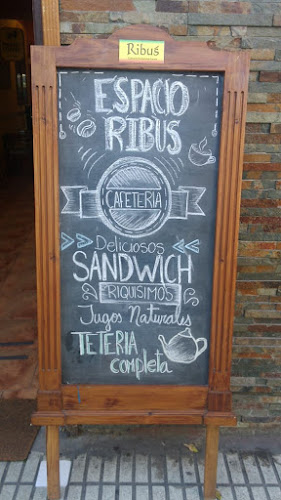 Ribus
ESPACIO
RIBUS
CAFETERÍA
Deliciosos
SANDWICH
RIQUISIMOS
Jugos Naturales
TETERIA
completa